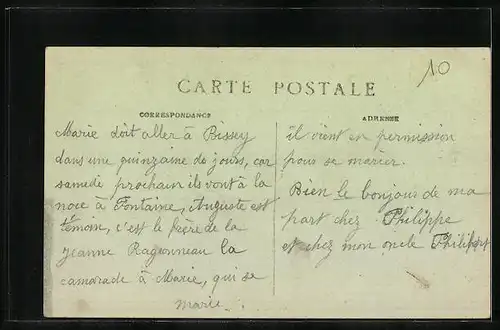 10
CARTE POSTALE
CORRESPONDANCE
Marie doit aller à Bissey
dans une quinzaine de jours, car
samedi prochain ils vont à la
noce à Fontaine, Auguste est
témoin, c'est le frère de la
Jeanne Ragonneau la
camarade à Marie, qui se
marie.
ADRESSE
il vient en permission
pour se marier.
Bien le bonjour de ma
part chez Philippe
et chez mon oncle Philippe